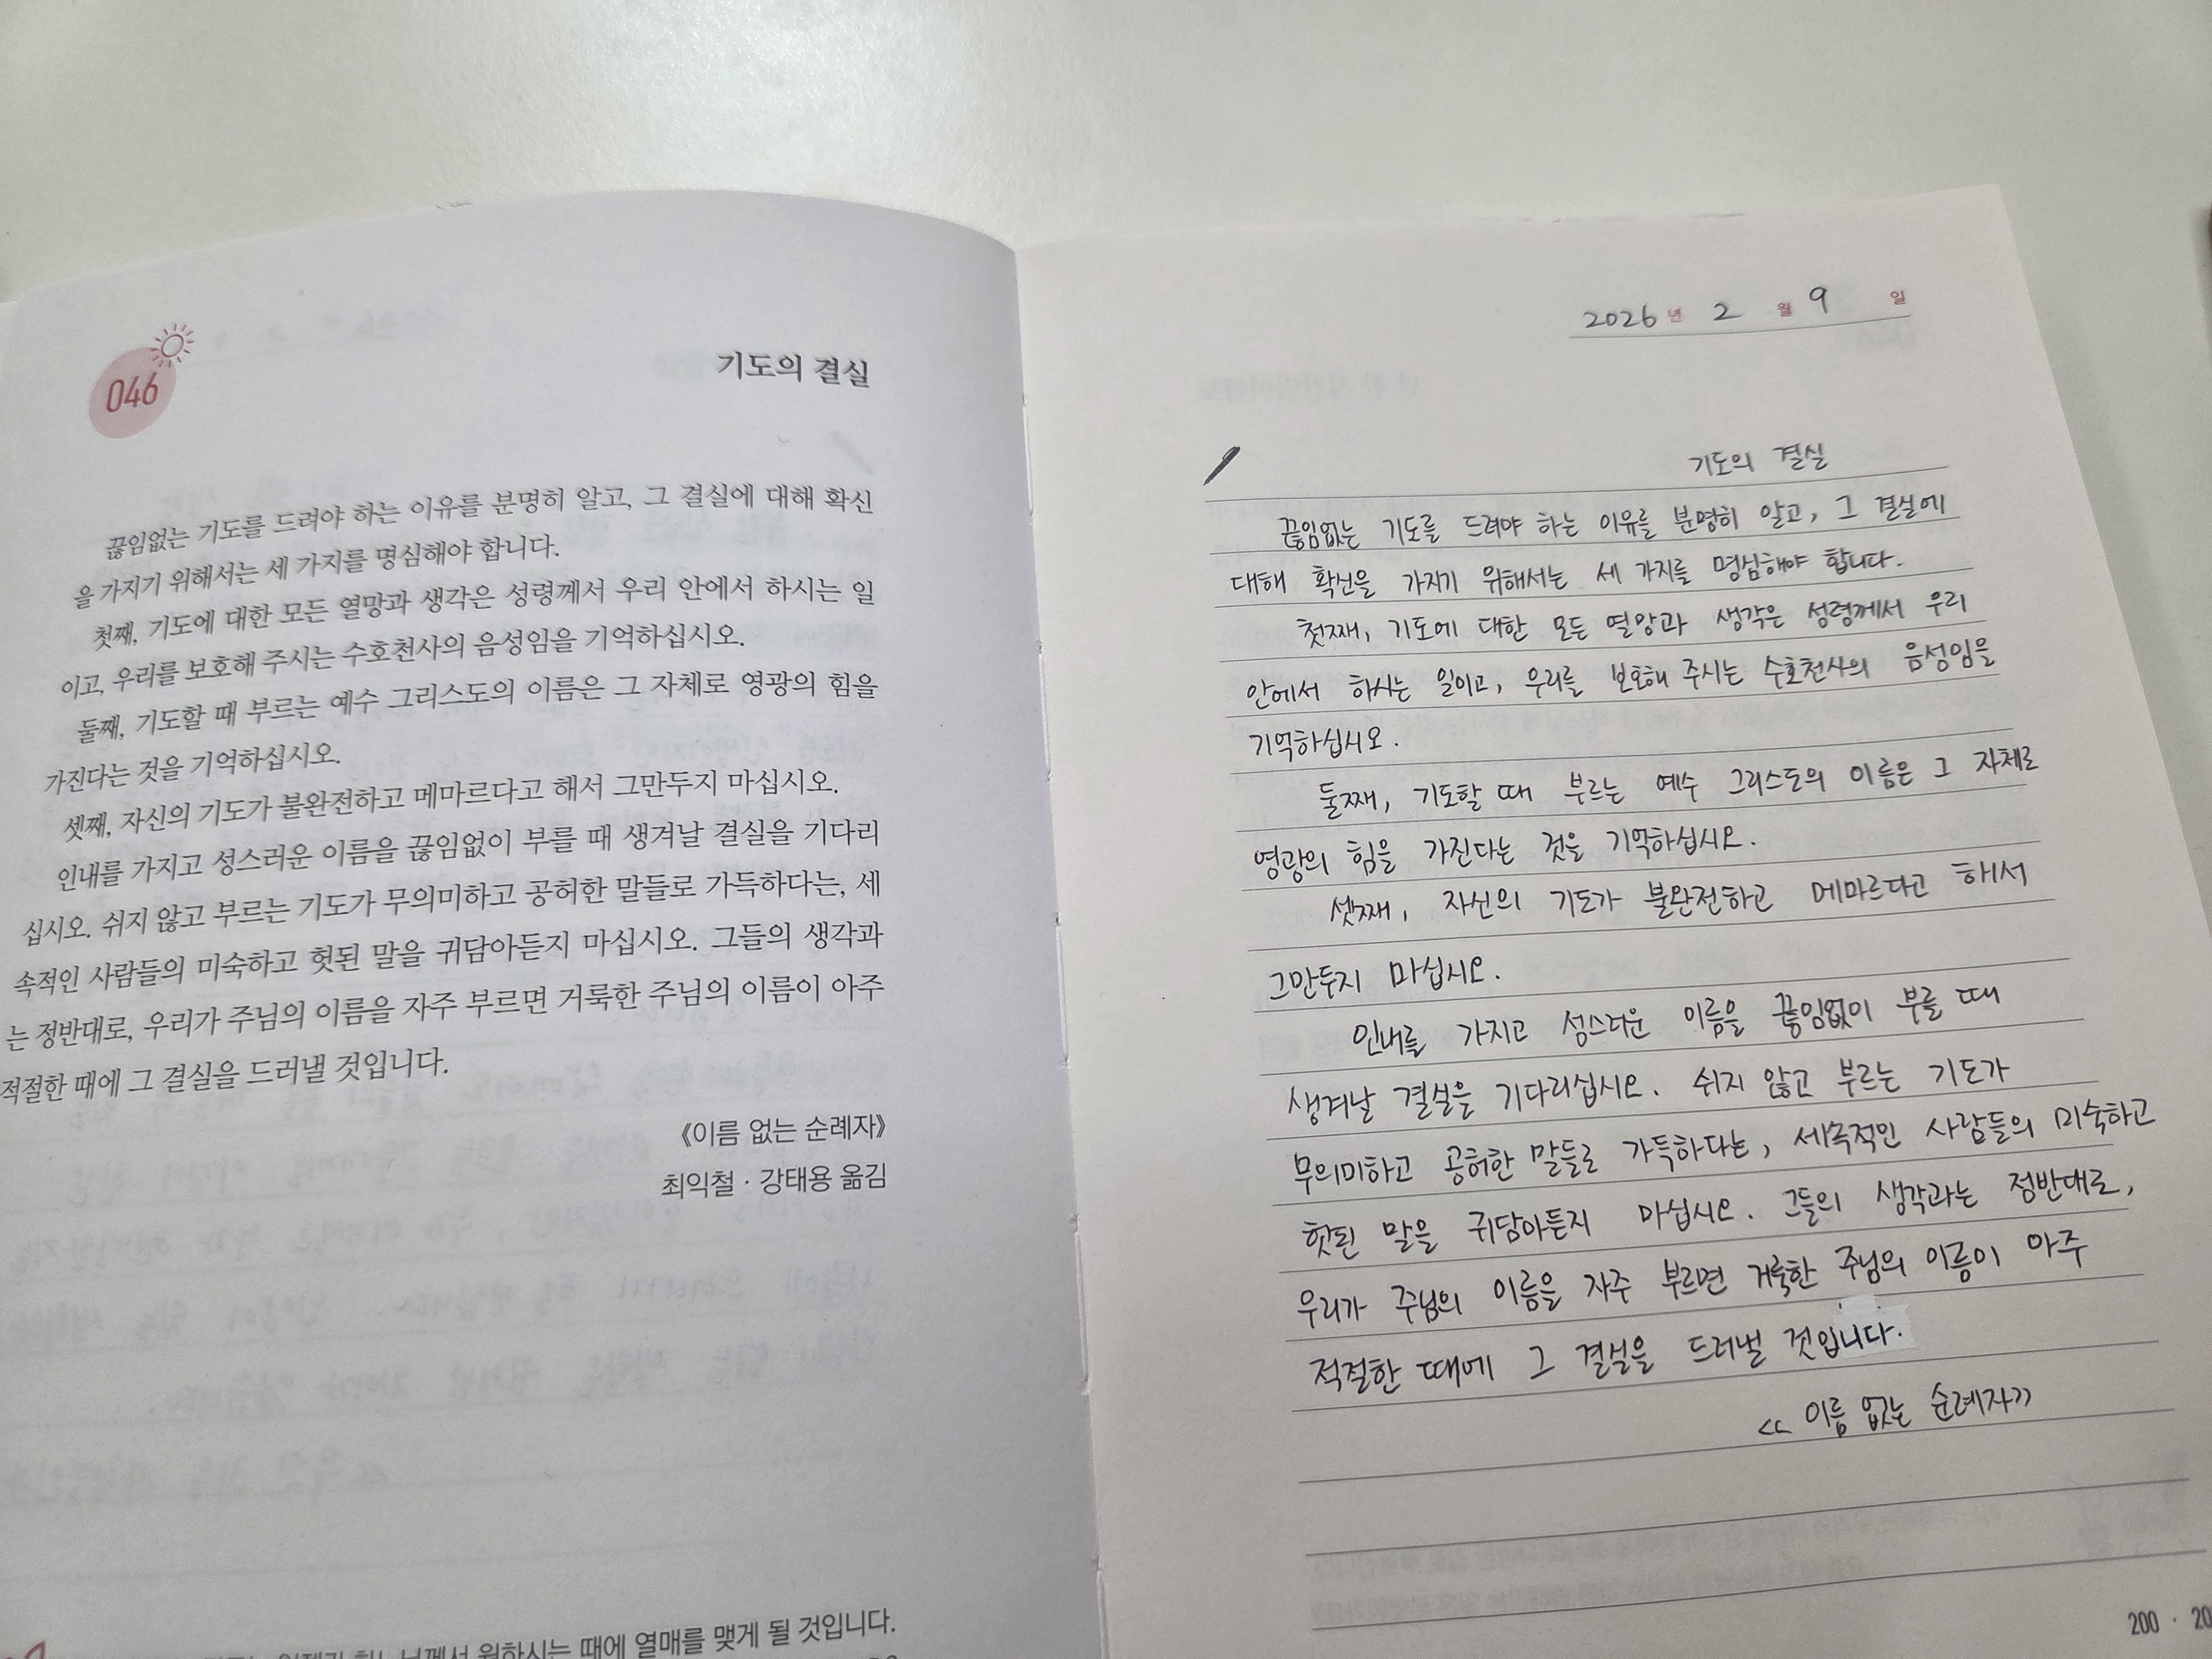 046
기도의 결실
끊임없는 기도를 드려야 하는 이유를 분명히 알고, 그 결실에 대해 확신
을 가지기 위해서는 세 가지를 명심해야 합니다.
첫째, 기도에 대한 모든 열망과 생각은 성령께서 우리 안에서 하시는 일
이고, 우리를 보호해 주시는 수호천사의 음성임을 기억하십시오.
둘째, 기도할 때 부르는 예수 그리스도의 이름은 그 자체로 영광의 힘을
가진다는 것을 기억하십시오.
셋째, 자신의 기도가 불완전하고 메마르다고 해서 그만두지 마십시오.
인내를 가지고 성스러운 이름을 끊임없이 부를 때 생겨날 결실을 기다리
십시오. 쉬지 않고 부르는 기도가 무의미하고 공허한 말들로 가득하다는, 세
속적인 사람들의 미숙하고 헛된 말을 귀담아듣지 마십시오. 그들의 생각과
는 정반대로, 우리가 주님의 이름을 자주 부르면 거룩한 주님의 이름이 아주
적절한 때에 그 결실을 드러낼 것입니다.
《이름 없는 순례자》
최익철 · 강태용 옮김
원하시는 때에 열매를 맺게 될 것입니다.
2026년 2월 9일
기도의 결실
끊임없는 기도를 드려야 하는 이유를 분명히 알고, 그 결실에
대해 확신을 가지기 위해서는 세 가지를 명심해야 합니다.
첫째, 기도에 대한 모든 열망과 생각은 성령께서 우리
안에서 하시는 일이고, 우리를 보호해 주시는 수호천사의 음성임을
기억하십시오.
둘째, 기도할 때 부르는 예수 그리스도의 이름은 그 자체로
영광의 힘을 가진다는 것을 기억하십시오.
셋째, 자신의 기도가 불완전하고 메마르다고 해서
그만두지 마십시오.
인내를 가지고 성스러운 이름을 끊임없이 부를 때
생겨날 결실을 기다리십시오. 쉬지 않고 부르는 기도가
무의미하고 공허한 말들로 가득하다는, 세속적인 사람들의 미숙하고
헛된 말을 귀담아듣지 마십시오. 그들의 생각과는 정반대로,
우리가 주님의 이름을 자주 부르면 거룩한 주님의 이름이 아주
적절한 때에 그 결실을 드러낼 것입니다.
<< 이름 없는 순례자>>
200 · 20